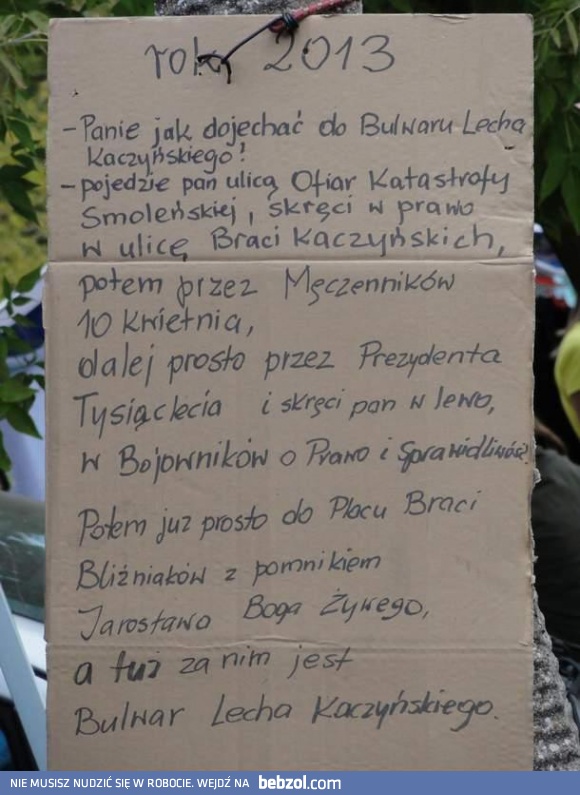 rok 2013
- Panie jak dojechać do Bulwaru Lecha
Kaczyńskiego?
- pojedzie pan ulicą Ofiar Katastrofy
Smoleńskiej, skręci w prawo
w ulicę Braci Kaczyńskich,
potem przez Męczenników
10 kwietnia,
dalej prosto przez Prezydenta
Tysiąclecia i skręci pan w lewo,
w Bojowników o Prawo i Sprawidliwość
Potem juz prosto do Placu Braci
Bliźniaków z pomnikiem
Jarosława Boga Żywego,
a tuż za nim jest
Bulwar Lecha Kaczyńskiego.
NIE MUSISZ NUDZIĆ SIĘ W ROBOCIE. WEJDŹ NA bebzol.com